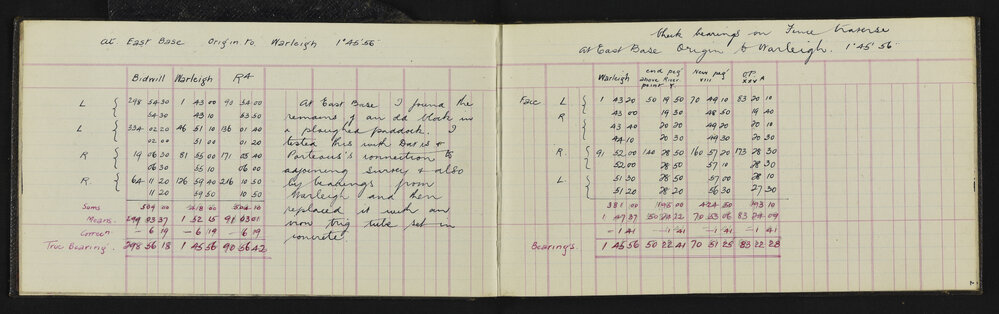 At East Base Origin to Warleigh 1°45'56"
Bidwill Warleigh RA
L 298 54 30 1 43 00 90 54 00
54 30 43 10 53 50
L 334 02 20 46 51 10 136 01 40
02 00 51 00 01 20
R 19 06 30 81 55 00 171 05 40
06 30 55 10 06 00
R. 64 11 20 126 59 40 216 10 50
11 20 59 50 10 50
Sums 509 00 418 00 504 10
Means. 299 03 37 1 52 15 91 03 01
Correcn - 6 19 - 6 19 - 6 19
True Bearing 298 56 18 1 45 56 90 56 42
At East Base I found the
remains of an old block in
a ploughed paddock. I
tested this with Davis &
Porteous's connection to
adjoining survey & also
by bearings from
Warleigh and then
replaced it with an
iron trig tube set in
concrete.
Check bearings on Time traverse
At East Base Origin to Warleigh. 1°45'56"
Warleigh end peg above River point Y. New peg XIII OP XXX A
Face L 1 43 20 50 19 50 70 49 10 83 20 10
43 00 19 50 48 50 19 40
R 43 40 20 20 49 20 20 10
44 10 20 30 49 30 20 30
R. 91 52 00 140 28 50 160 57 20 173 28 30
52 00 28 50 57 10 28 30
L. 51 30 28 50 57 00 28 10
51 20 28 20 56 30 27 30
381 00 195 00 424 50 193 10
1 47 37 50 24 22 70 53 06 83 24 09
- 1 41 - 1 41 - 1 41 - 1 41
Bearings. 1 45 56 50 22 41 70 51 25 83 22 28